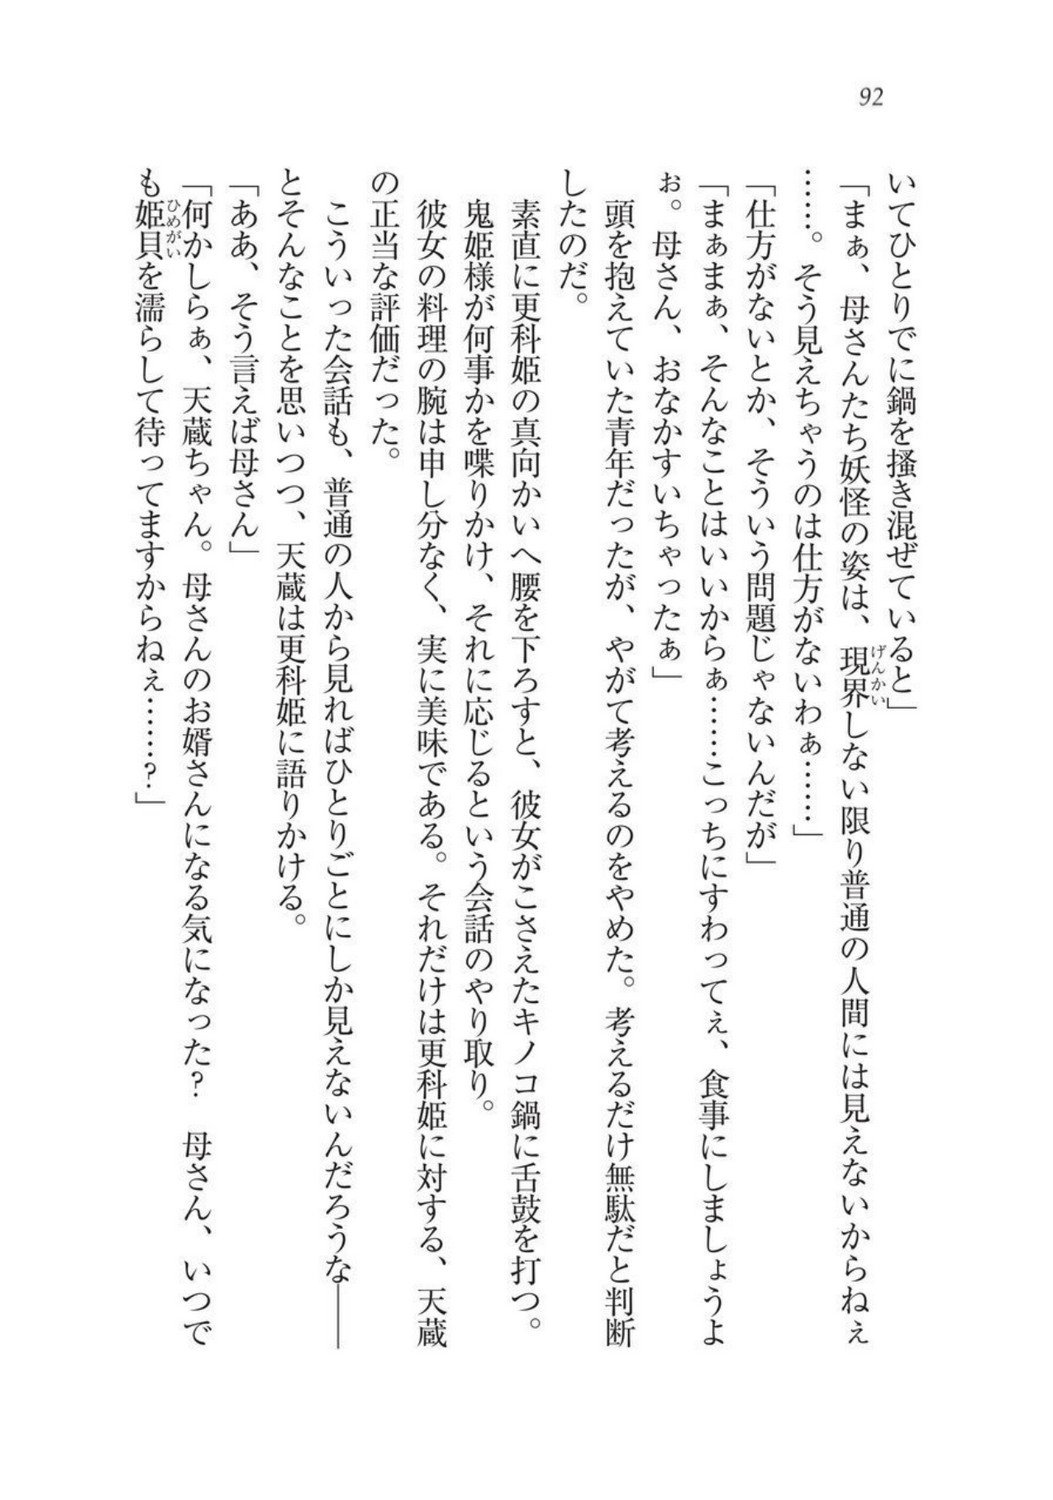 92
いてひとりでに鍋を掻き混ぜていると」
「まぁ、母さんたち妖怪の姿は、現界しない限り普通の人間には見えないからねぇ
……。そう見えちゃうのは仕方がないわぁ……」
「仕方がないとか、そういう問題じゃないんだが」
「まぁまぁ、そんなことはいいからぁ……こっちにすわってぇ、食事にしましょうよ
ぉ。母さん、おなかすいちゃったぁ」
頭を抱えていた青年だったが、やがて考えるのをやめた。考えるだけ無駄だと判断
したのだ。
素直に更科姫の真向かいへ腰を下ろすと、彼女がこさえたキノコ鍋に舌鼓を打つ。
鬼姫様が何事かを喋りかけ、それに応じるという会話のやり取り。
彼女の料理の腕は申し分なく、実に美味である。それだけは更科姫に対する、天蔵
の正当な評価だった。
こういった会話も、普通の人から見ればひとりごとにしか見えないんだろうな――
とそんなことを思いつつ、天蔵は更科姫に語りかける。
「ああ、そう言えば母さん」
「何かしらぁ、天蔵ちゃん。母さんのお婿さんになる気になった？　母さん、いつで
も姫貝を濡らして待ってますからねぇ……？」
げんかい
ひめがい